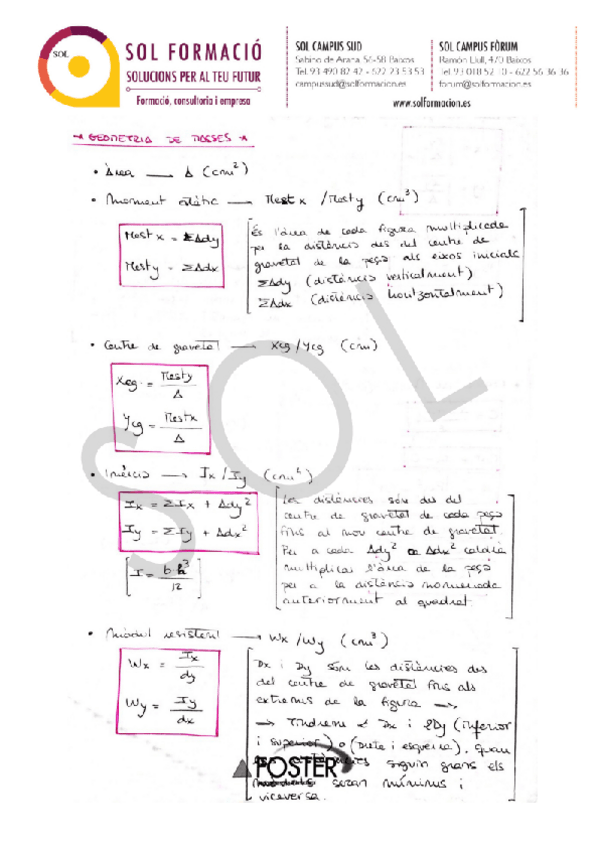 SOL
SOL FORMACIÓ
SOLUCIONS PER AL TEU FUTUR
Formació, consultoria i empresa
SOL CAMPUS SUD
Sabino de Arana, 56-58 Baixos
Tel. 93 490 82 42 - 622 23 53 53
campussud@solformacion.es
SOL CAMPUS FÒRUM
Ramón Llull, 470 Baixos
Tel. 93 018 52 10 - 622 56 36 36
forum@solformacion.es
www.solformacion.es
GEOMETRIA DE MASSES
• Àrea → A (cm²)
• Moment estàtic → Mestx / Mesty (cm³)
Mestx = ΣAdy
Mesty = ΣAdx
És l'àrea de cada figura multiplicada
per la distància des del centre de
gravetat de la peça als eixos inicials
ΣAdy (distància verticalment)
ΣAdx (distància horitzontalment)
• Centre de gravetat → Xcg / Ycg (cm)
Xcg = Mesty / A
Ycg = Mestx / A
• Inèrcia → Ix / Iy (cm⁴)
Ix = ΣIx + Ady²
Iy = ΣIy + Adx²
I = b·h³ / 12
Les distàncies són des del
centre de gravetat de cada peça
fins al nou centre de gravetat
Per a cada Ady² o Adx² caldrà
multiplicar l'àrea de la peça
per a la distància mencionada
anteriorment al quadrat
• Mòdul resistent → Wx / Wy (cm³)
Wx = Ix / dy
Wy = Iy / dx
Dx i Dy són les distàncies des
del centre de gravetat fins als
extrems de la figura →
→ Tindrem 2 Dx i 2Dy (inferior
i superior) o (dreta i esquerra). Quan
siguin grans els
seran mínims i
viceversa.
SOL
FOSTER